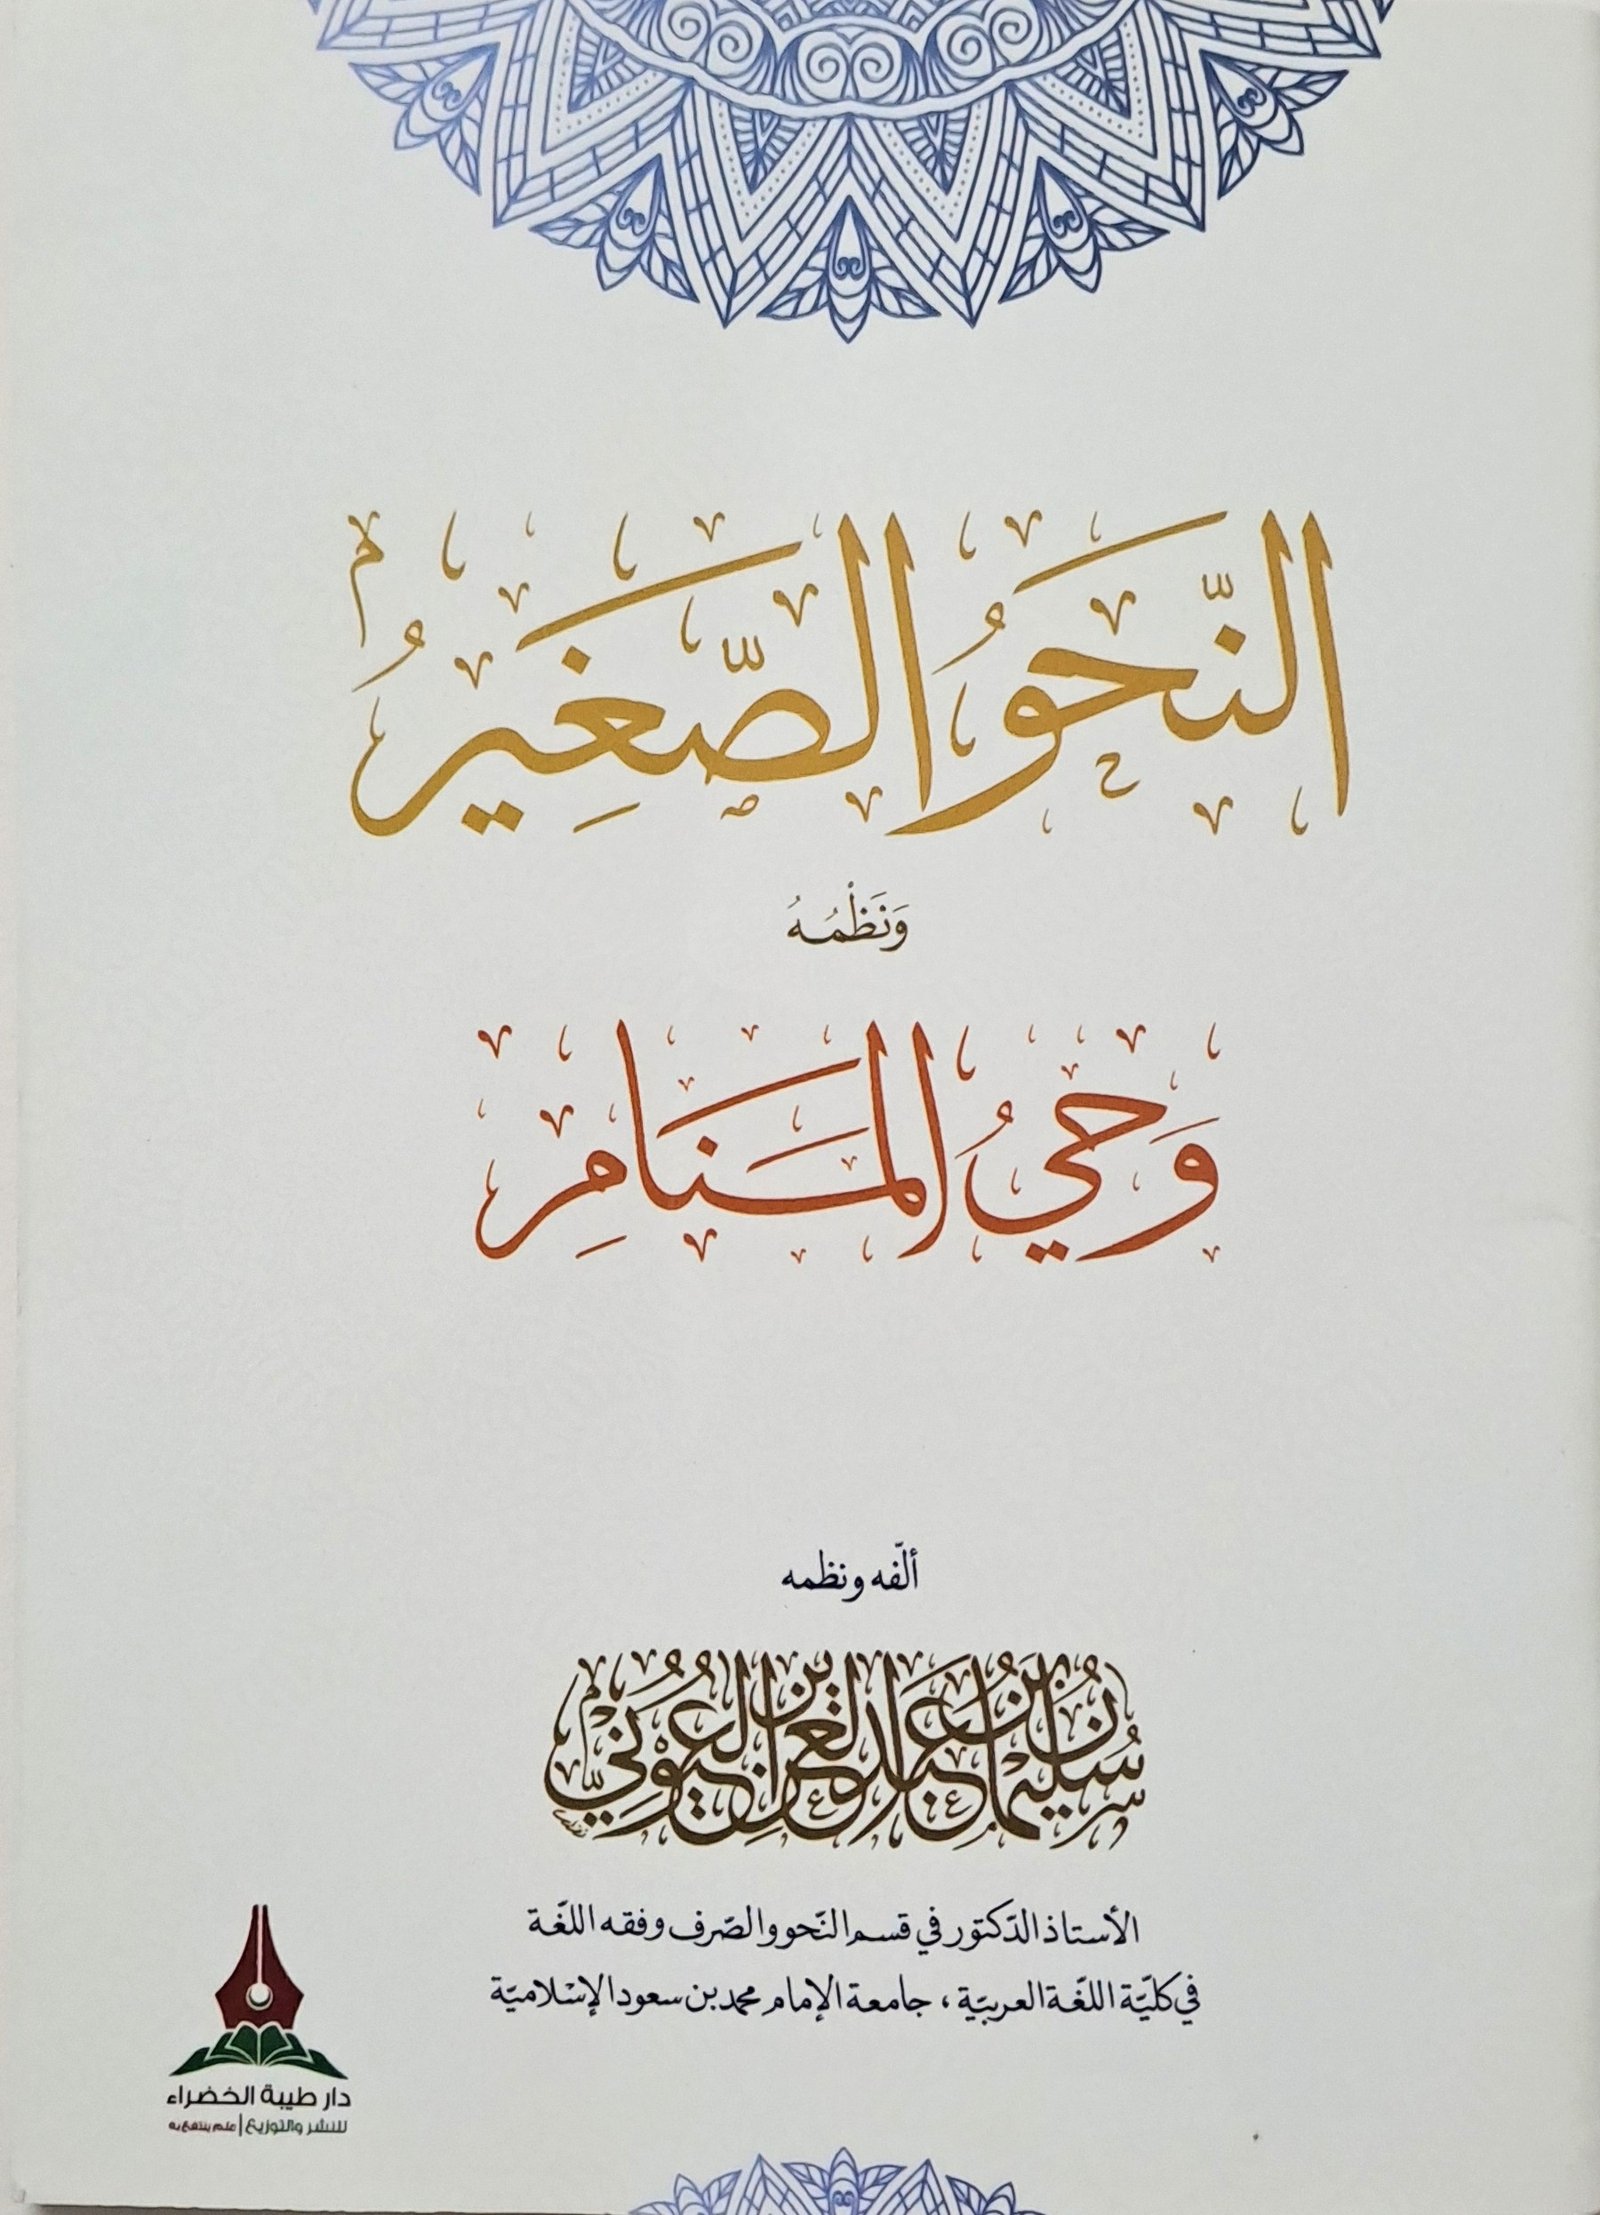 النَّحَوُ الصَّغِيرُ
وَنَظْمُهُ
وَحَيُ المَنَامِ
ألّفه ونظمه
سُلَيْمَانُ بْنُ عَبْدِ العَزِيزِ العُيُوْنِيُّ
الأستاذ الدّكتور في قسم النّحو والصّرف وفقه اللغّة
في كليّة اللغّة العربيّة، جامعة الإمام محمد بن سعود الإسْلاميّة
دار طيبة الخضراء
للنشر والتوزيع | علم ينتفع به